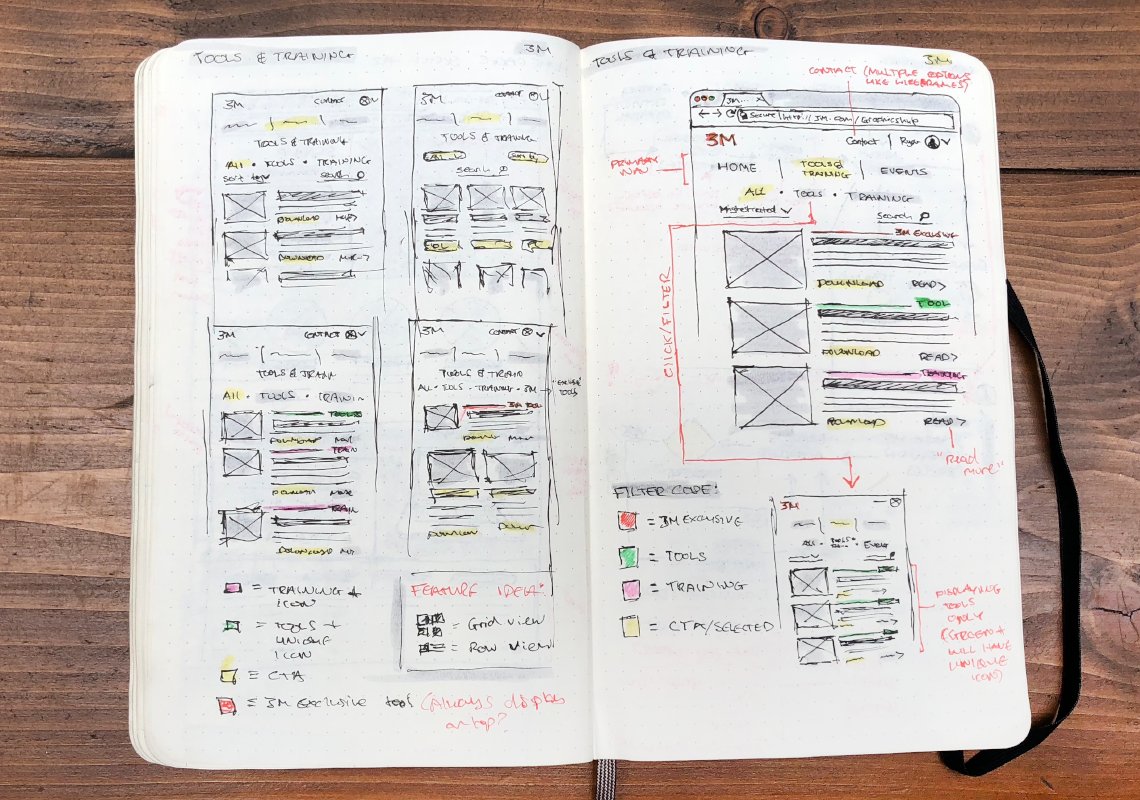 TOOLS & TRAINING
3M
3M CONTACT
TOOLS & TRAINING
All • TOOLS • TRAINING
Sort by Search
DOWNLOAD
DOWNLOAD
3M CONTACT
TOOLS & TRAINING
Search
3M CONTACT
TOOLS & TRAIN
All • TOOLS • TRAINI
TOOLS
TRAIN
DOWNLOAD
TRAIN
DOWNLOAD
3M CONTACT
TOOLS & TRAIN
ALL • TOOLS • TRAINING • 3M
3M TOOL
"EXCLUSIVE
TOOLS
= TRAINING +
ICON
= TOOLS +
UNIQUE
ICON
= CTA
= 3M EXCLUSIVE tool (Always display
on top?
FEATURE IDEA:
= Grid view
= Row view
TOOLS & TRAINING
3M
CONTACT (MULTIPLE OPTIONS
LIKE WIREFRAMES)
3M...
Secure http://3M.com/Graphicshub
3M Contact Ryan
PRIMARY
NAV
HOME TOOLS &
TRAINING EVENTS
All • TOOLS • TRAINING
Highest rated Search
3M EXCLUSIVE
DOWNLOAD READ>
TOOL
DOWNLOAD READ>
TRAINING
DOWNLOAD READ>
CLICK/FILTER
"Read
more"
FILTER CODE:
= 3M EXCLUSIVE
= TOOLS
= TRAINING
= CTA/SELECTED
3M
All • TOOLS • Event
DISPLAYING
TOOLS
ONLY
(GREEN +
WILL HAVE
UNIQUE
ICON)